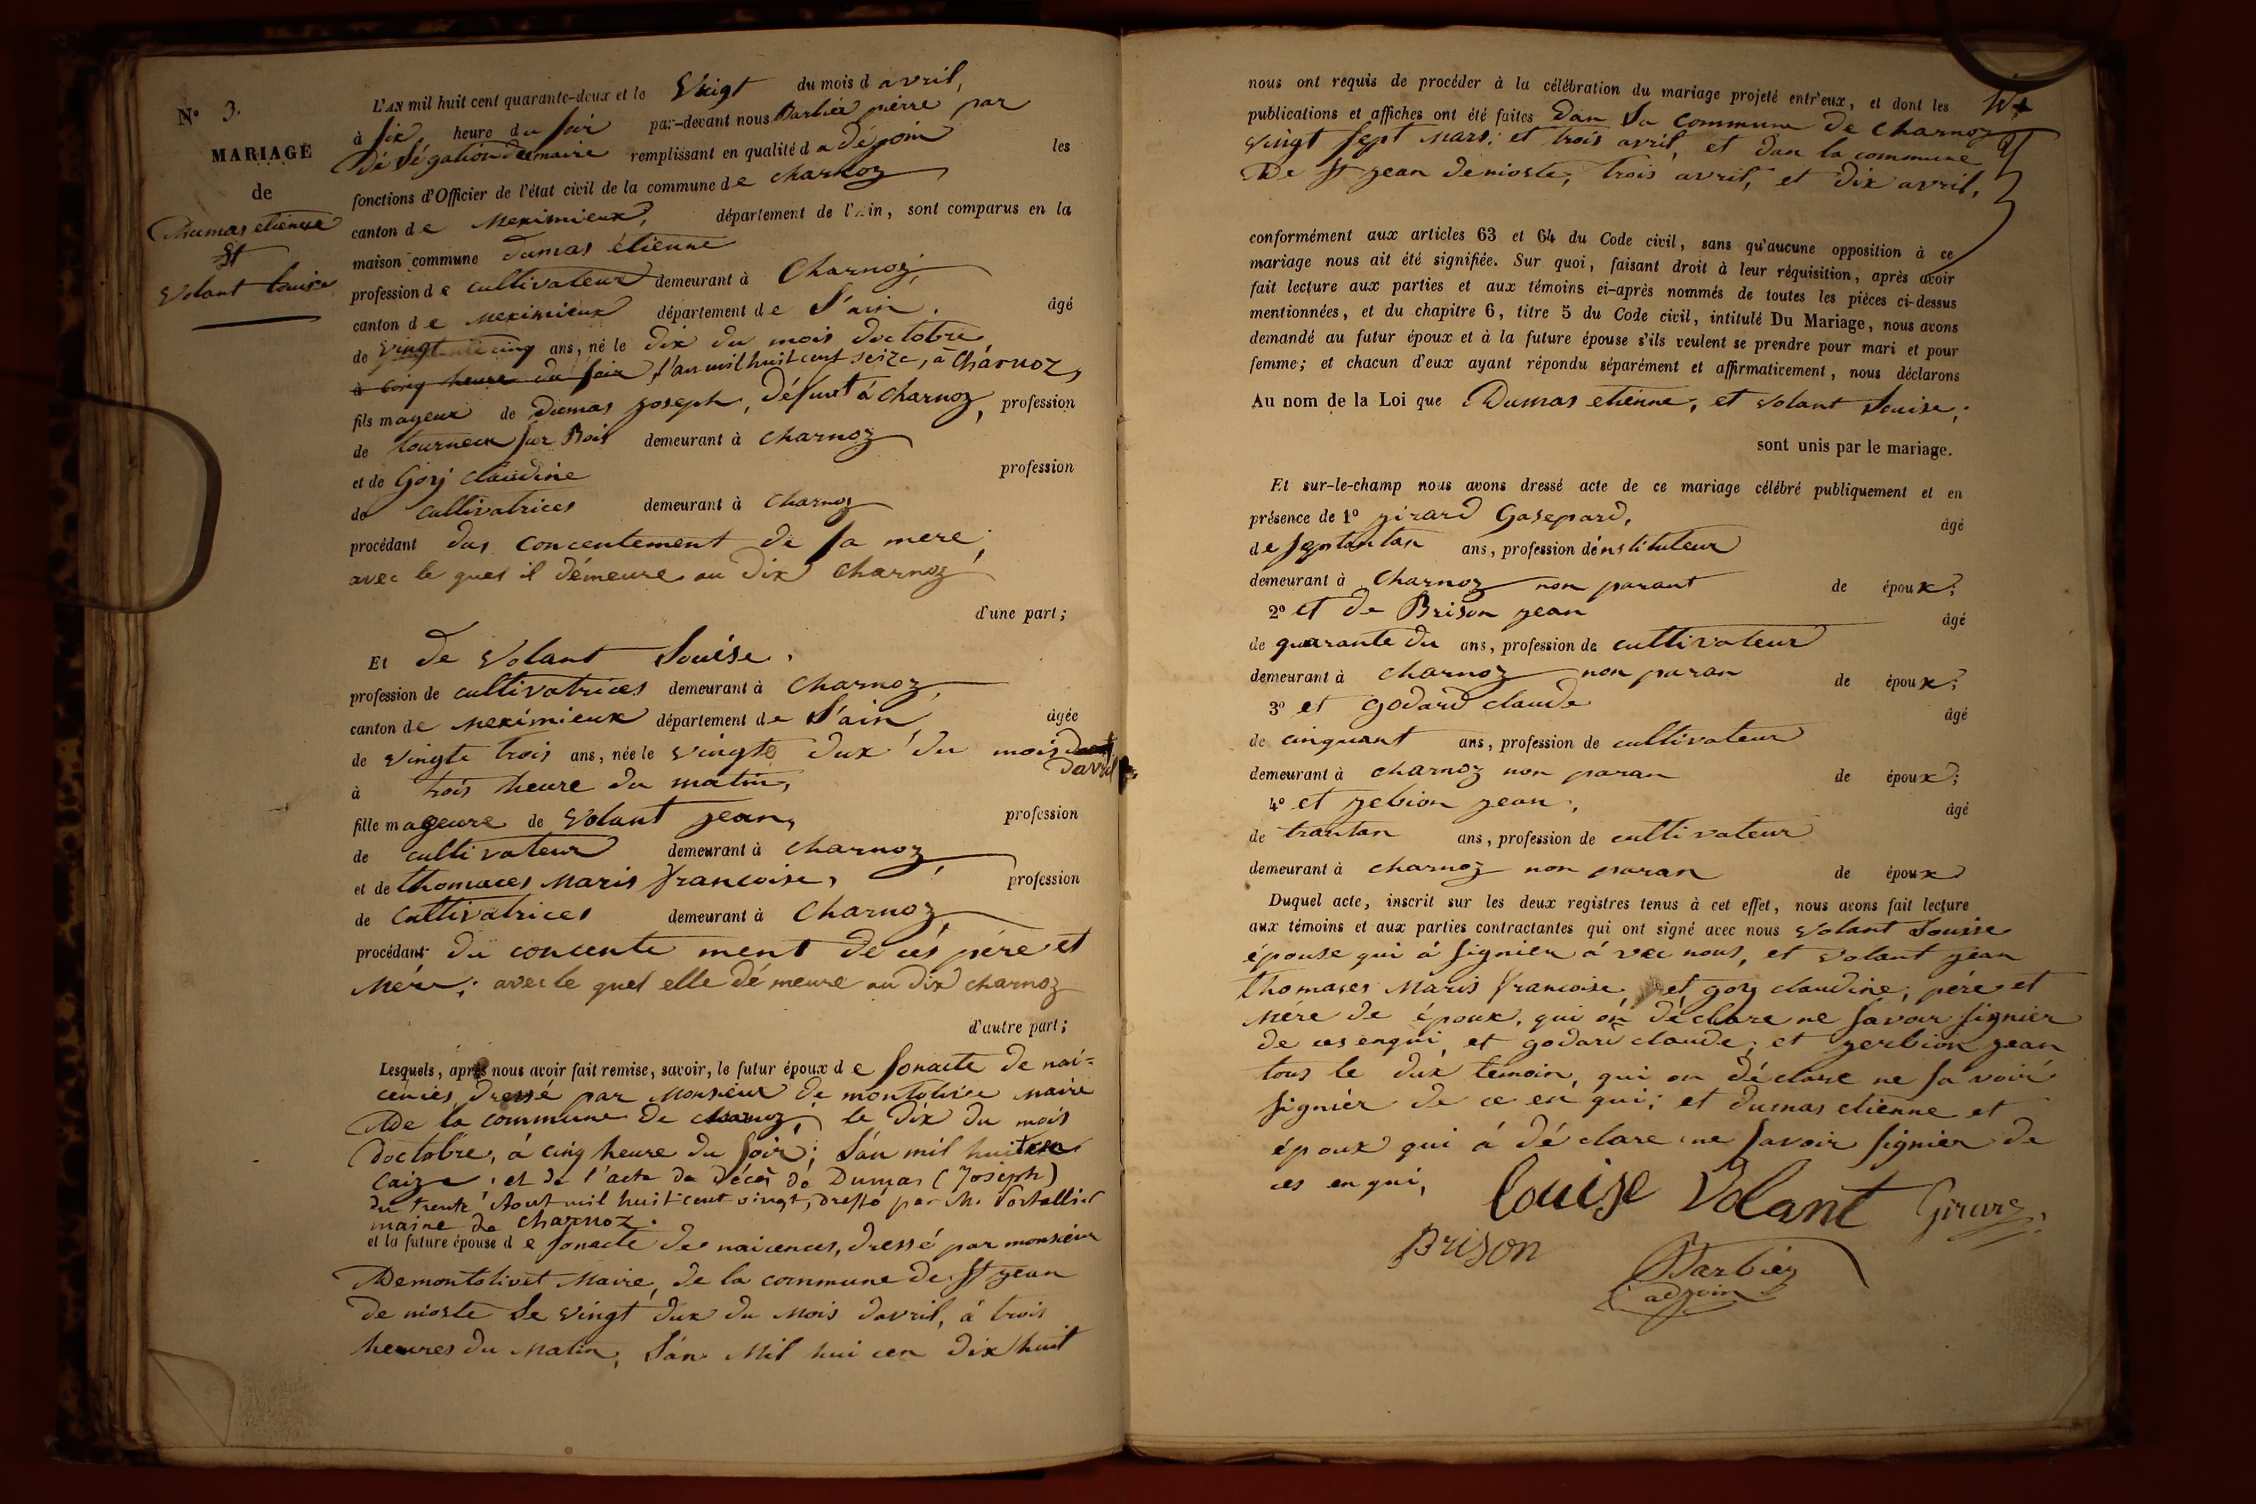 N° 3.
MARIAGE
de
Dumas etienne
Et
Volant Louise
L'AN mil huit cent quarante-deux et le Vingt du mois d avril,
à six, heure du soir par-devant nous Barbier pierre par
délégation de maire remplissant en qualité d adégoin les
fonctions d'Officier de l'état civil de la commune de charnoz
canton de Meximieux, département de l'Ain, sont comparus en la
maison commune Dumas étienne
profession de cultivateur demeurant à Charnoz,
canton de Meximieux département de L'ain. âgé
de vingt cinq ans, né le dix du mois doctobre
à cinq heure du soir l'an mil huit cent seize, à Charnoz,
fils mageur de Dumas joseph, Défunt à charnoz, profession
de tourneur sur Bois demeurant à charnoz
et de Gorj claudine profession
de cultivatrices demeurant à charnoz
procédant du concentement de sa mere,
avec le quel il démeure au dix charnoz
d'une part;
Et de Volant Louise.
profession de cultivatrices demeurant à Charnoz,
canton de Meximieux département de L'ain âgée
de vingte trois ans, née le vingte dux du mois
davril
à trois heure du matin,
fille mageure de Volant jean, profession
de cultivateur demeurant à charnoz,
et de thomaces Maris francoise, profession
de cultivatrices demeurant à Charnoz
procédant du concente ment de cés pére et
Mére; avec le quel elle démeure au dix charnoz
d'autre part;
Lesquels, après nous avoir fait remise, savoir, le futur époux d e sonacte de nai=
cences, dressé par Monsieur de montolivée maire
de la commune de charnoz, le dix du mois
doctobre, à cinq heure du soir; L'an mil huit cen
caize, et de l'acte de décès de Dumas (Joseph)
du trente Aout mil huit cent vingt, dressé par M.
maire de Charnoz.
et la future épouse d e sonacte de naicences, dressé par monsieur
Demontolivet Maire, de la commune de St jean
de nioste Le vingt dux du Mois davril, à trois
heures du Matin, L'an Mil hui cen dix huit
nous ont requis de procéder à la célébration du mariage projeté entr'eux, et dont les
publications et affiches ont été faites Dan La commune de charnoz
vingt sept Mars: et trois avril, et dan la commune
De St jean de nioste, trois avril, et dix avril,
conformément aux articles 63 et 64 du Code civil, sans qu'aucune opposition à ce
mariage nous ait été signifiée. Sur quoi, faisant droit à leur réquisition, après avoir
fait lecture aux parties et aux témoins ci-après nommés de toutes les pièces ci-dessus
mentionnées, et du chapitre 6, titre 5 du Code civil, intitulé Du Mariage, nous avons
demandé au futur époux et à la future épouse s'ils veulent se prendre pour mari et pour
femme; et chacun d'eux ayant répondu séparément et affirmativement, nous déclarons
Au nom de la Loi que Dumas etienne, et Volant Louise,
sont unis par le mariage.
Et sur-le-champ nous avons dressé acte de ce mariage célébré publiquement et en
présence de 1° girard Gasepard, âgé
de septantan ans, profession dénstituteur
demeurant à Charnoz non parant de époux;
2° et de Brison jean âgé
de quarante du ans, profession de cultivateur
demeurant à charnoz non paran de époux;
3° et godard claude âgé
de cinquant ans, profession de cultivateur
demeurant à charnoz non paran de époux;
4° et jebion jean, âgé
de trantan ans, profession de cultivateur
demeurant à charnoz non paran de époux
Duquel acte, inscrit sur les deux registres tenus à cet effet, nous avons fait lecture
aux témoins et aux parties contractantes qui ont signé avec nous Volant Louise
épouse qui à signier à vec nous, et volant jean
thomases Maris francoise et gorj claudine, pére et
Mére de époux, qui on déclare ne savoir signier
de ces enqui, et godard claude, et jerbion jean
tous le dux témoin, qui on déclare ne sa voir
signier de ce en qui; et dumas etienne et
époux qui à déclare ne savoir signier de
ces en qui,
Louise Volant Girard
Brison
Barbier
adjoin